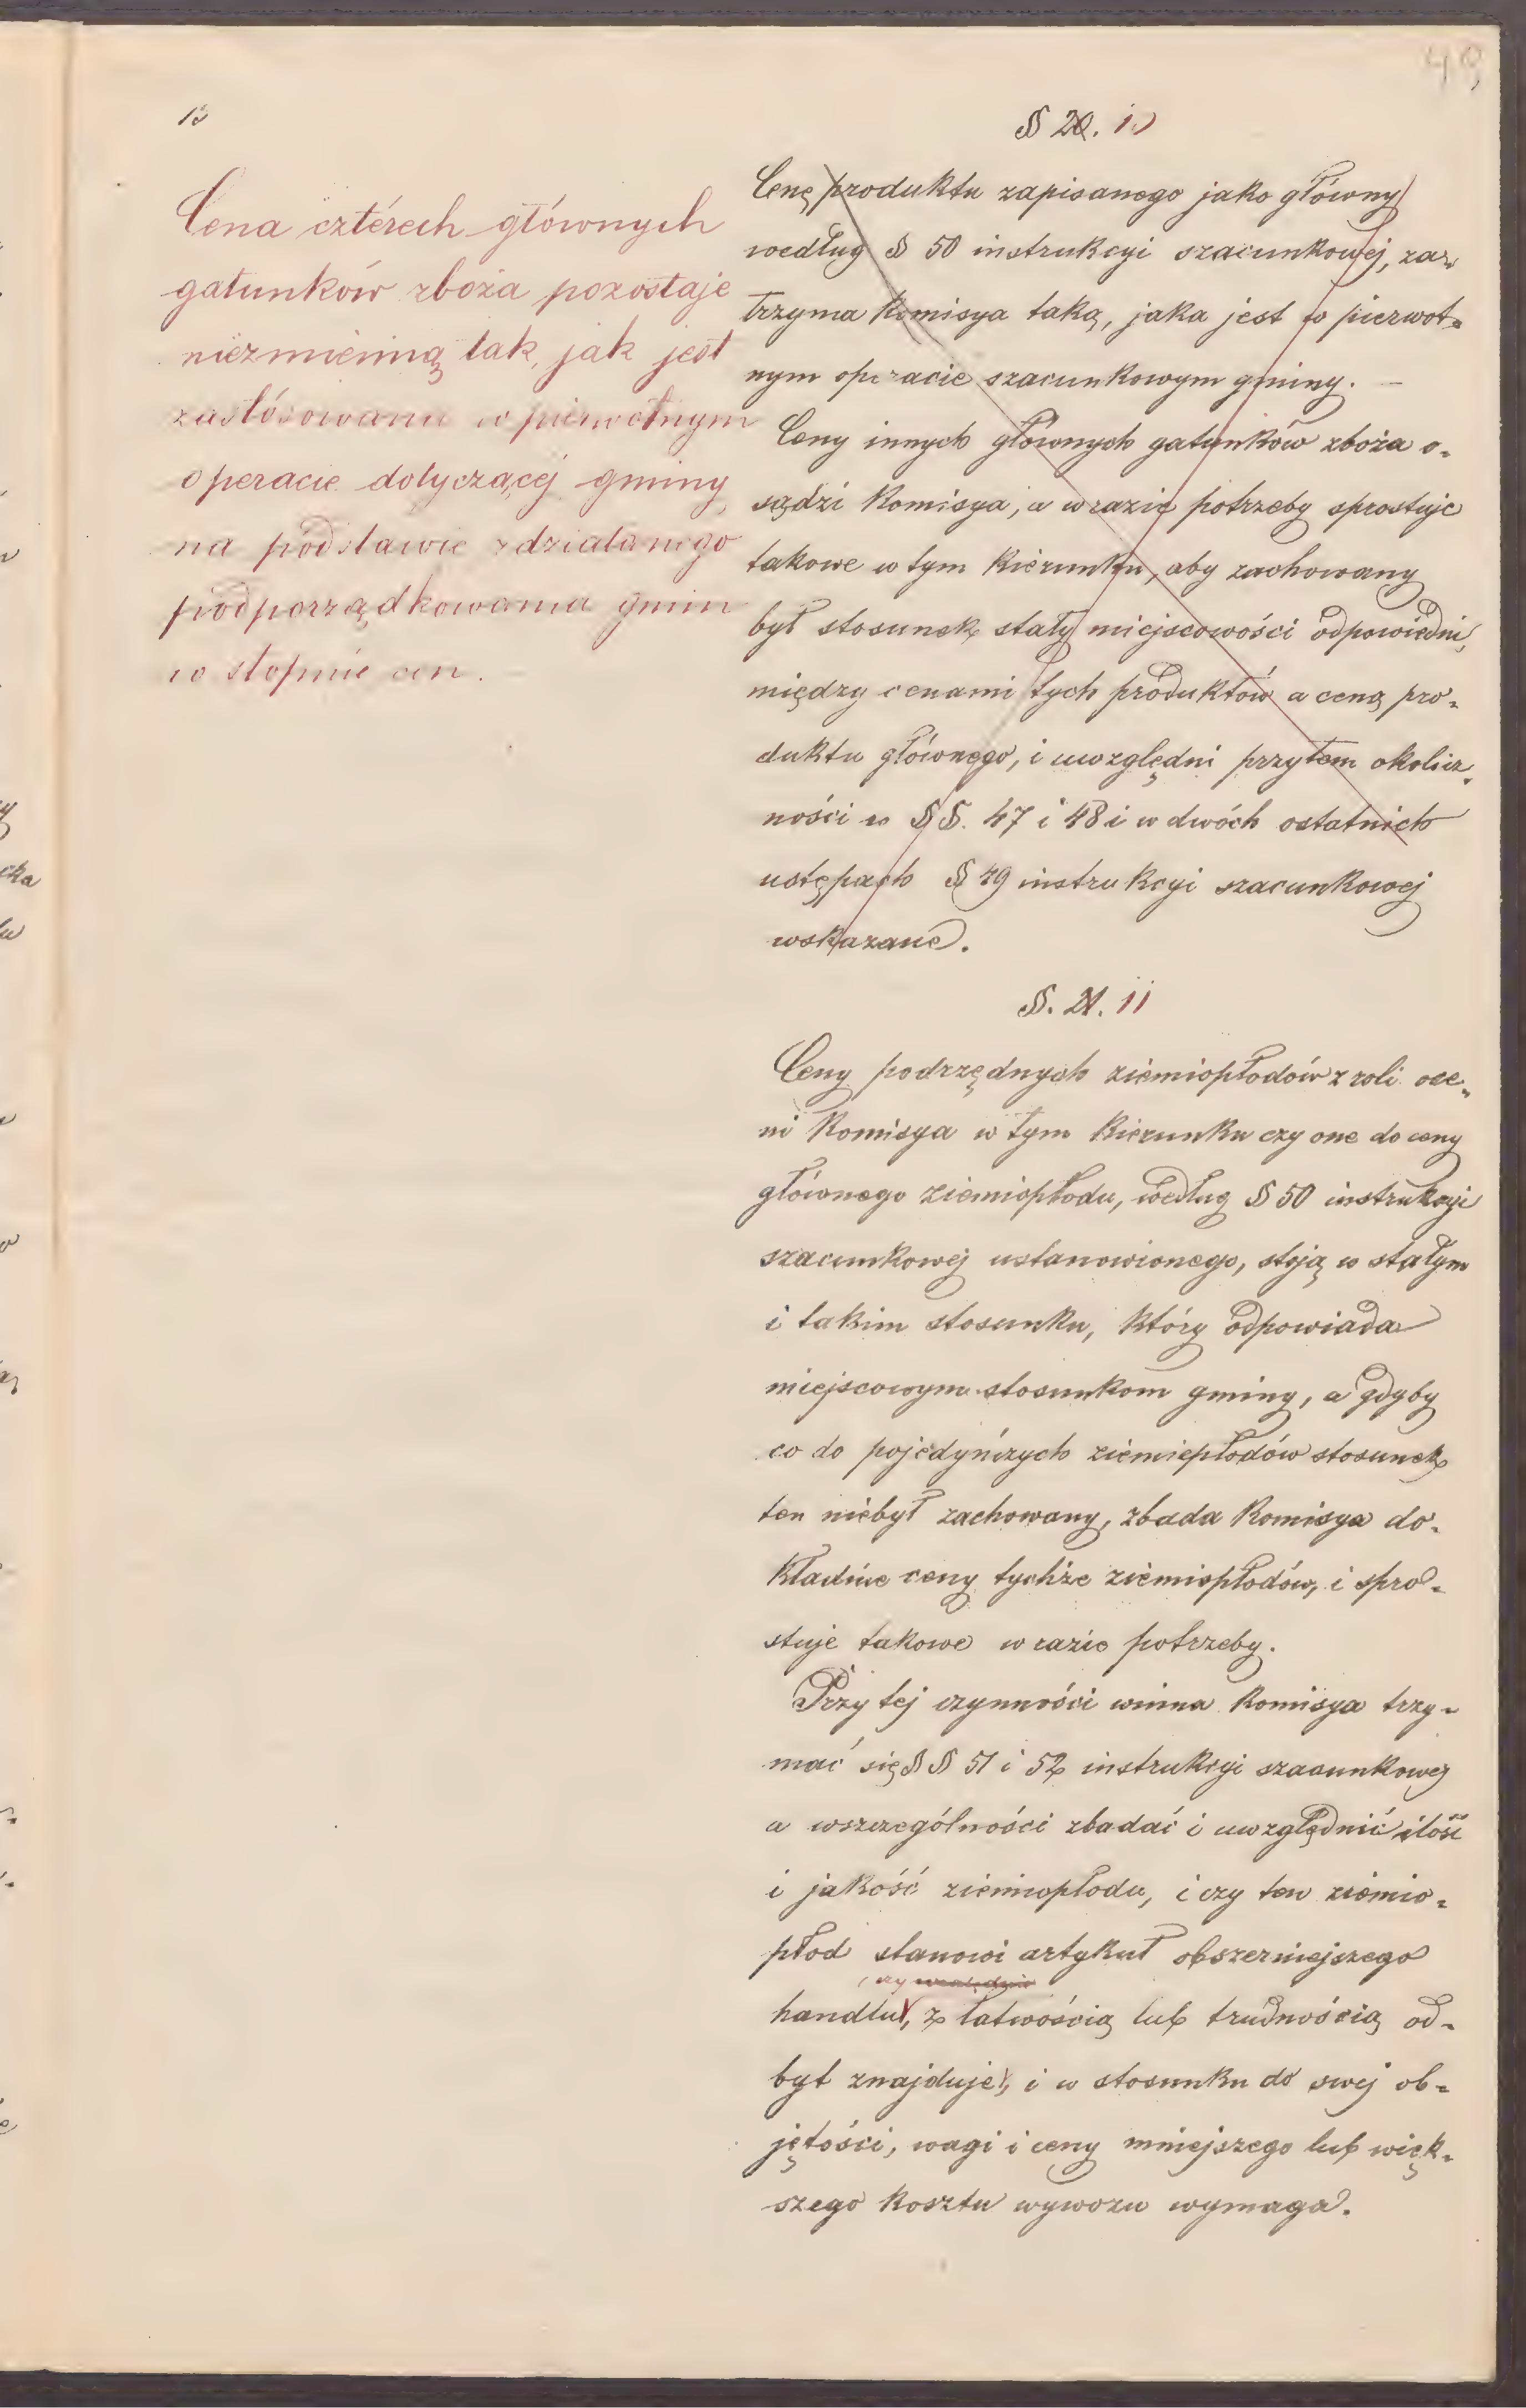 49
10
Cena cztérech głównych
gatunków zboża pozostaje
niezmienną tak, jak jest
zastósowana w pierwotnym
operacie dotyczącéj gminy,
na podstawie zdziałanego
podporządkowania gmin
w stopnie cen.
§ 20. 10
Cenę produktu zapisanego jako główny
według § 50 instrukcyi szacunkowej, za-
trzyma Komisya taką, jaka jest w pierwot-
nym operacie szacunkowym gminy. —
Ceny innych głównych gatunków zboża o-
sądzi Komisya, a w razie potrzeby sprostuje
takowe w tym kierunku, aby zachowany
był stosunek stały miejscowości odpowiedni,
między cenami tych produktów a ceną pro-
duktu głównego, i uwzględni przytem okolicz-
ności w §§. 47 i 48 i w dwóch ostatnich
ustępach § 49 instrukcyi szacunkowej
wskazane.
§. 21. 11
Ceny podrzędnych ziemiopłodów z roli oce-
ni Komisya w tym kierunku czy one do ceny
głównego ziemiopłodu, według § 50 instrukcyi
szacunkowej ustanowionego, stoją w stałym
i takim stosunku, który odpowiada
miejscowym stosunkom gminy, a gdyby
co do pojedyńczych ziemiopłodów stosunek
ten niebył zachowany, zbada Komisya do-
kładnie ceny tychże ziemiopłodów, i spro-
stuje takowe w razie potrzeby.
Przy tej czynności winna Komisya trzy-
mać się §§ 51 i 52 instrukcyi szacunkowej
a wszczególności zbadać i uwzględnić ilość
i jakość ziemiopłodu, i czy ten ziemio-
płod stanowi artykuł obszerniejszego
, czy
handlu, z łatwością lub trudnością od-
byt znajduje, i w stosunku do swej ob-
jętości, wagi i ceny mniejszego lub więk-
szego kosztu wywozu wymaga.